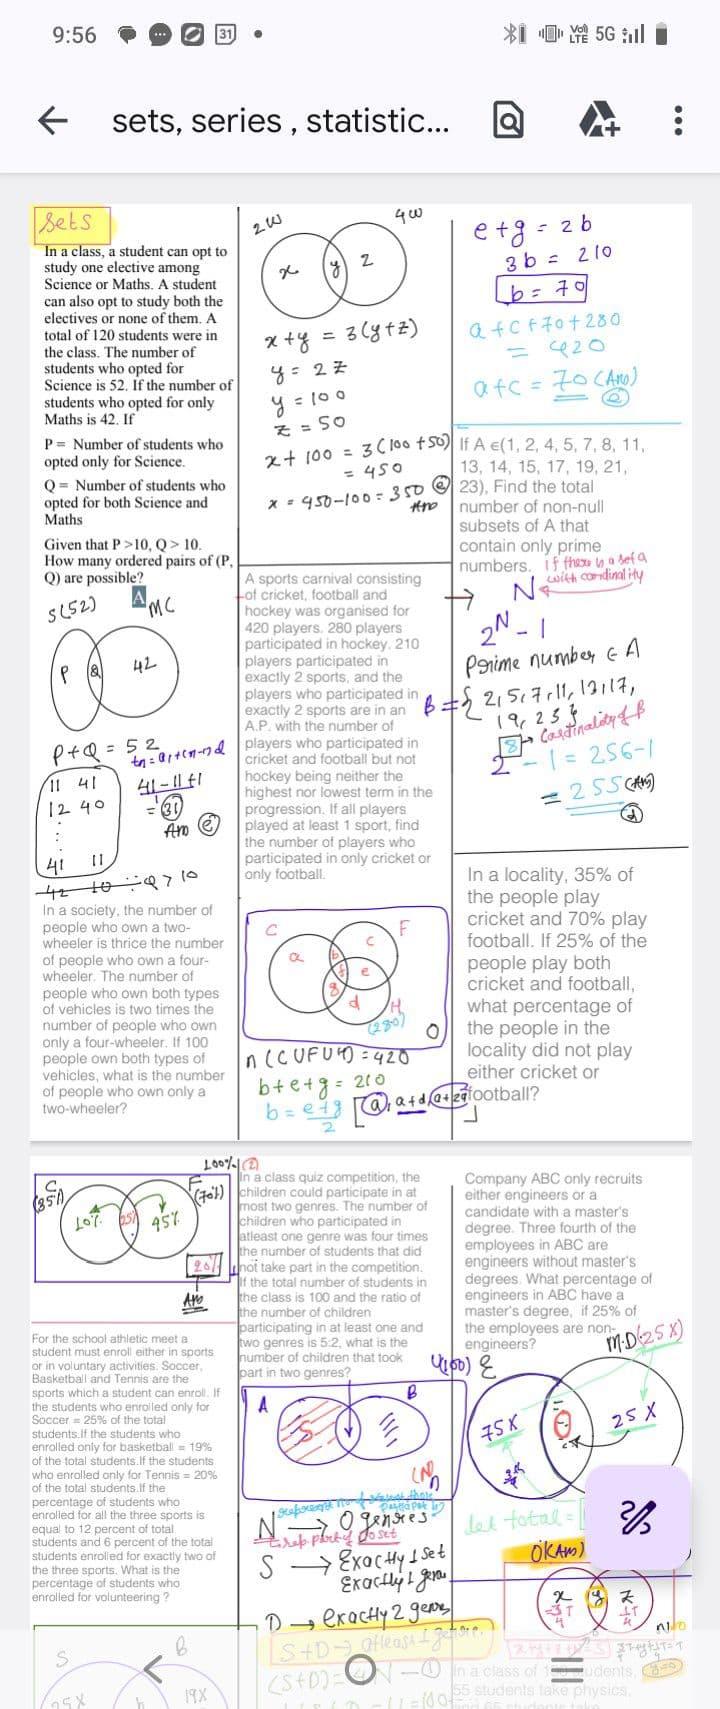 9:56
31
Vo)) LTE 5G
sets, series , statistic...
Sets
In a class, a student can opt to
study one elective among
Science or Maths. A student
can also opt to study both the
electives or none of them. A
total of 120 students were in
the class. The number of
students who opted for
Science is 52. If the number of
students who opted for only
Maths is 42. If
P = Number of students who
opted only for Science.
Q = Number of students who
opted for both Science and
Maths
Given that P >10, Q > 10.
How many ordered pairs of (P,
Q) are possible?
A
S(52)
MC
P
Q
42
P+Q = 52
tn = a1+(n-1)d
11 41
12 40
41 11
41-11+1
= 31
Ans
42 10 ∵ Q > 10
In a society, the number of
people who own a two-
wheeler is thrice the number
of people who own a four-
wheeler. The number of
people who own both types
of vehicles is two times the
number of people who own
only a four-wheeler. If 100
people own both types of
vehicles, what is the number
of people who own only a
two-wheeler?
2W
4W
x
y
z
x+y = 3(y+z)
y = 2z
y = 100
z = 50
x + 100 = 3(100+50)
= 450
x = 450-100 = 350
Ans
A sports carnival consisting
of cricket, football and
hockey was organised for
420 players. 280 players
participated in hockey. 210
players participated in
exactly 2 sports, and the
players who participated in
exactly 2 sports are in an
A.P. with the number of
players who participated in
cricket and football but not
hockey being neither the
highest nor lowest term in the
progression. If all players
played at least 1 sport, find
the number of players who
participated in only cricket or
only football.
C
F
a
b
c
f
e
g
d
H
(280)
O
n(CUFUH) = 420
b+e+g = 210
b = e+g
2
e+g = 2b
3b = 210
b = 70
a+c+70+280
= 420
a+c = 70 (Ans)
If A ∈(1, 2, 4, 5, 7, 8, 11,
13, 14, 15, 17, 19, 21,
23), Find the total
number of non-null
subsets of A that
contain only prime
numbers.
If there is a set a
with cardinality
N
2^N - 1
Prime number ∈ A
B = { 2, 5, 7, 11, 13, 17,
19, 23 }
8 → Cardinality of B
2 - 1 = 256-1
= 255 (Ans)
d
In a locality, 35% of
the people play
cricket and 70% play
football. If 25% of the
people play both
cricket and football,
what percentage of
the people in the
locality did not play
either cricket or
football?
100%
C
(35%)
F
(70%)
10%
25%
45%
20%
Ans
For the school athletic meet a
student must enroll either in sports
or in voluntary activities. Soccer,
Basketball and Tennis are the
sports which a student can enroll. If
the students who enrolled only for
Soccer = 25% of the total
students.If the students who
enrolled only for basketball = 19%
of the total students.If the students
who enrolled only for Tennis = 20%
of the total students.If the
percentage of students who
enrolled for all the three sports is
equal to 12 percent of total
students and 6 percent of the total
students enrolled for exactly two of
the three sports. What is the
percentage of students who
enrolled for volunteering ?
S
B
25X
b
19X
In a class quiz competition, the
children could participate in at
most two genres. The number of
children who participated in
atleast one genre was four times
the number of students that did
not take part in the competition.
If the total number of students in
the class is 100 and the ratio of
the number of children
participating in at least one and
two genres is 5:2, what is the
number of children that took
part in two genres?
A
B
S
N → 0 genres
S → Exactly 1 set
Exactly 1 genre
D → exactly 2 genres
S+D → atleast 1 genre.
(S+D) = 4N — ①
Company ABC only recruits
either engineers or a
candidate with a master's
degree. Three fourth of the
employees in ABC are
engineers without master's
degrees. What percentage of
engineers in ABC have a
master's degree, if 25% of
the employees are non-
engineers?
M.D (25X)
U(100)
E
75X
25X
let total =
0% (Ans)
x
y
z
In a class of
udents,
55 students take physics,